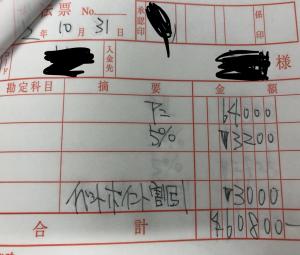 伝票 No.
5年 10月 31日 承認印 係印
入金先 様
勘定科目 摘要 金額
64000
5% ▼3200
ポイント割引 ▼3000
合計 ¥60800-